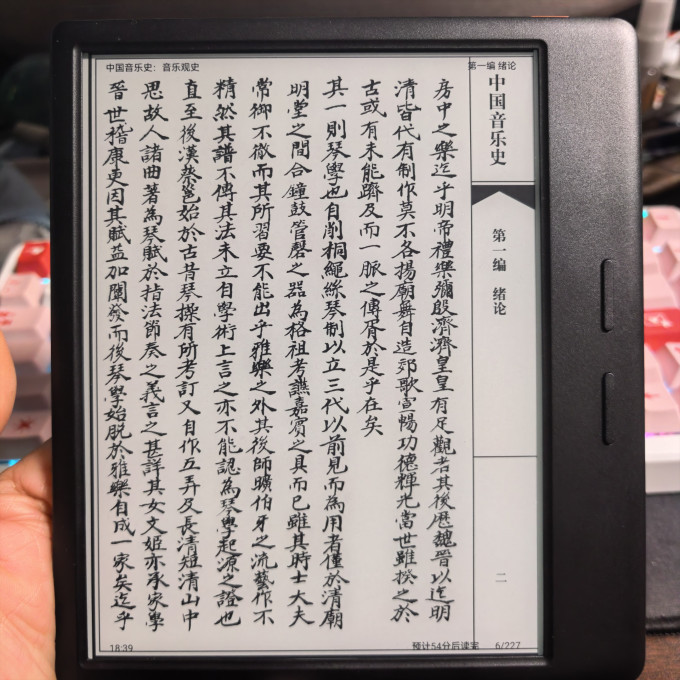 中国音乐史：音乐观史
第一编 绪论
中国音乐史
第一编 绪论
二
房中之樂迄乎明帝禮樂彌殷濟濟皇皇有足觀者其後歷魏晉以迄明
清皆代有制作莫不各揚廟舞自造郊歌宣暢功德輝光當世雖揆之於
古或有未能躋及而一脈之傳胥於是乎在矣
其一則琴學也自削桐繩絲琴制以立三代以前見而為用者僅於清廟
明堂之間合鐘鼓管磬之器為格祖考讌嘉賓之具而已雖其時士大夫
常御不徹而其所習要不能出乎雅樂之外其後師曠伯牙之流藝作不
精然其譜不傳其法未立自學術上言之亦不能認為琴學起源之證也
直至後漢蔡邕始於古昔琴操有所考訂又自作五弄及長清短清山中
思故人諸曲著為琴賦於指法節奏之義言之甚詳其女文姬亦承家學
晉世嵇康更因其賦益加闡發而後琴學始脫於雅樂自成一家矣迄乎
18:39
预计54分后读完
6/227